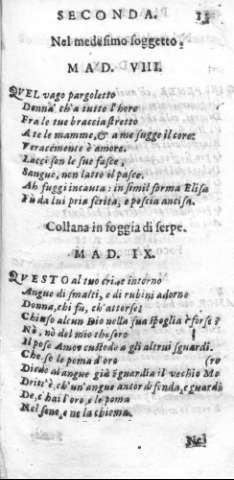 SECONDA. 13
Nel medesimo soggetto.
MAD. VIII.
QVEL vago pargoletto
Donna ch'a tutto l'hore
Fra le tue braccia stretto
A te le mamme, & a me sugge il core:
Veracemente è amore.
Lacci son le sue fasce,
Sangue, non latte il pasce.
Ah fuggi incauta: in simil forma Elisa
Fù da lui pria ferita, e poscia ancisa.
Collana in foggia di serpe.
MAD. IX.
QVESTO al tuo crine intorno
Angue di smalti, e di rubini adorno
Donna, chi fu, ch'attorse?
Chiuso alcun Dio nella sua spoglia è forse?
Nò, nò del mio thesoro
Il pose Amor custode a gli altrui sguardi.
Che se le poma d'oro (ro
Diede al angue già in guardia il vechio Mo
Dritt'è, ch'un'angue ancor difenda, e guardi
De, e hai l'oro, e le poma
Nel seno, e ne la chioma.
Nel